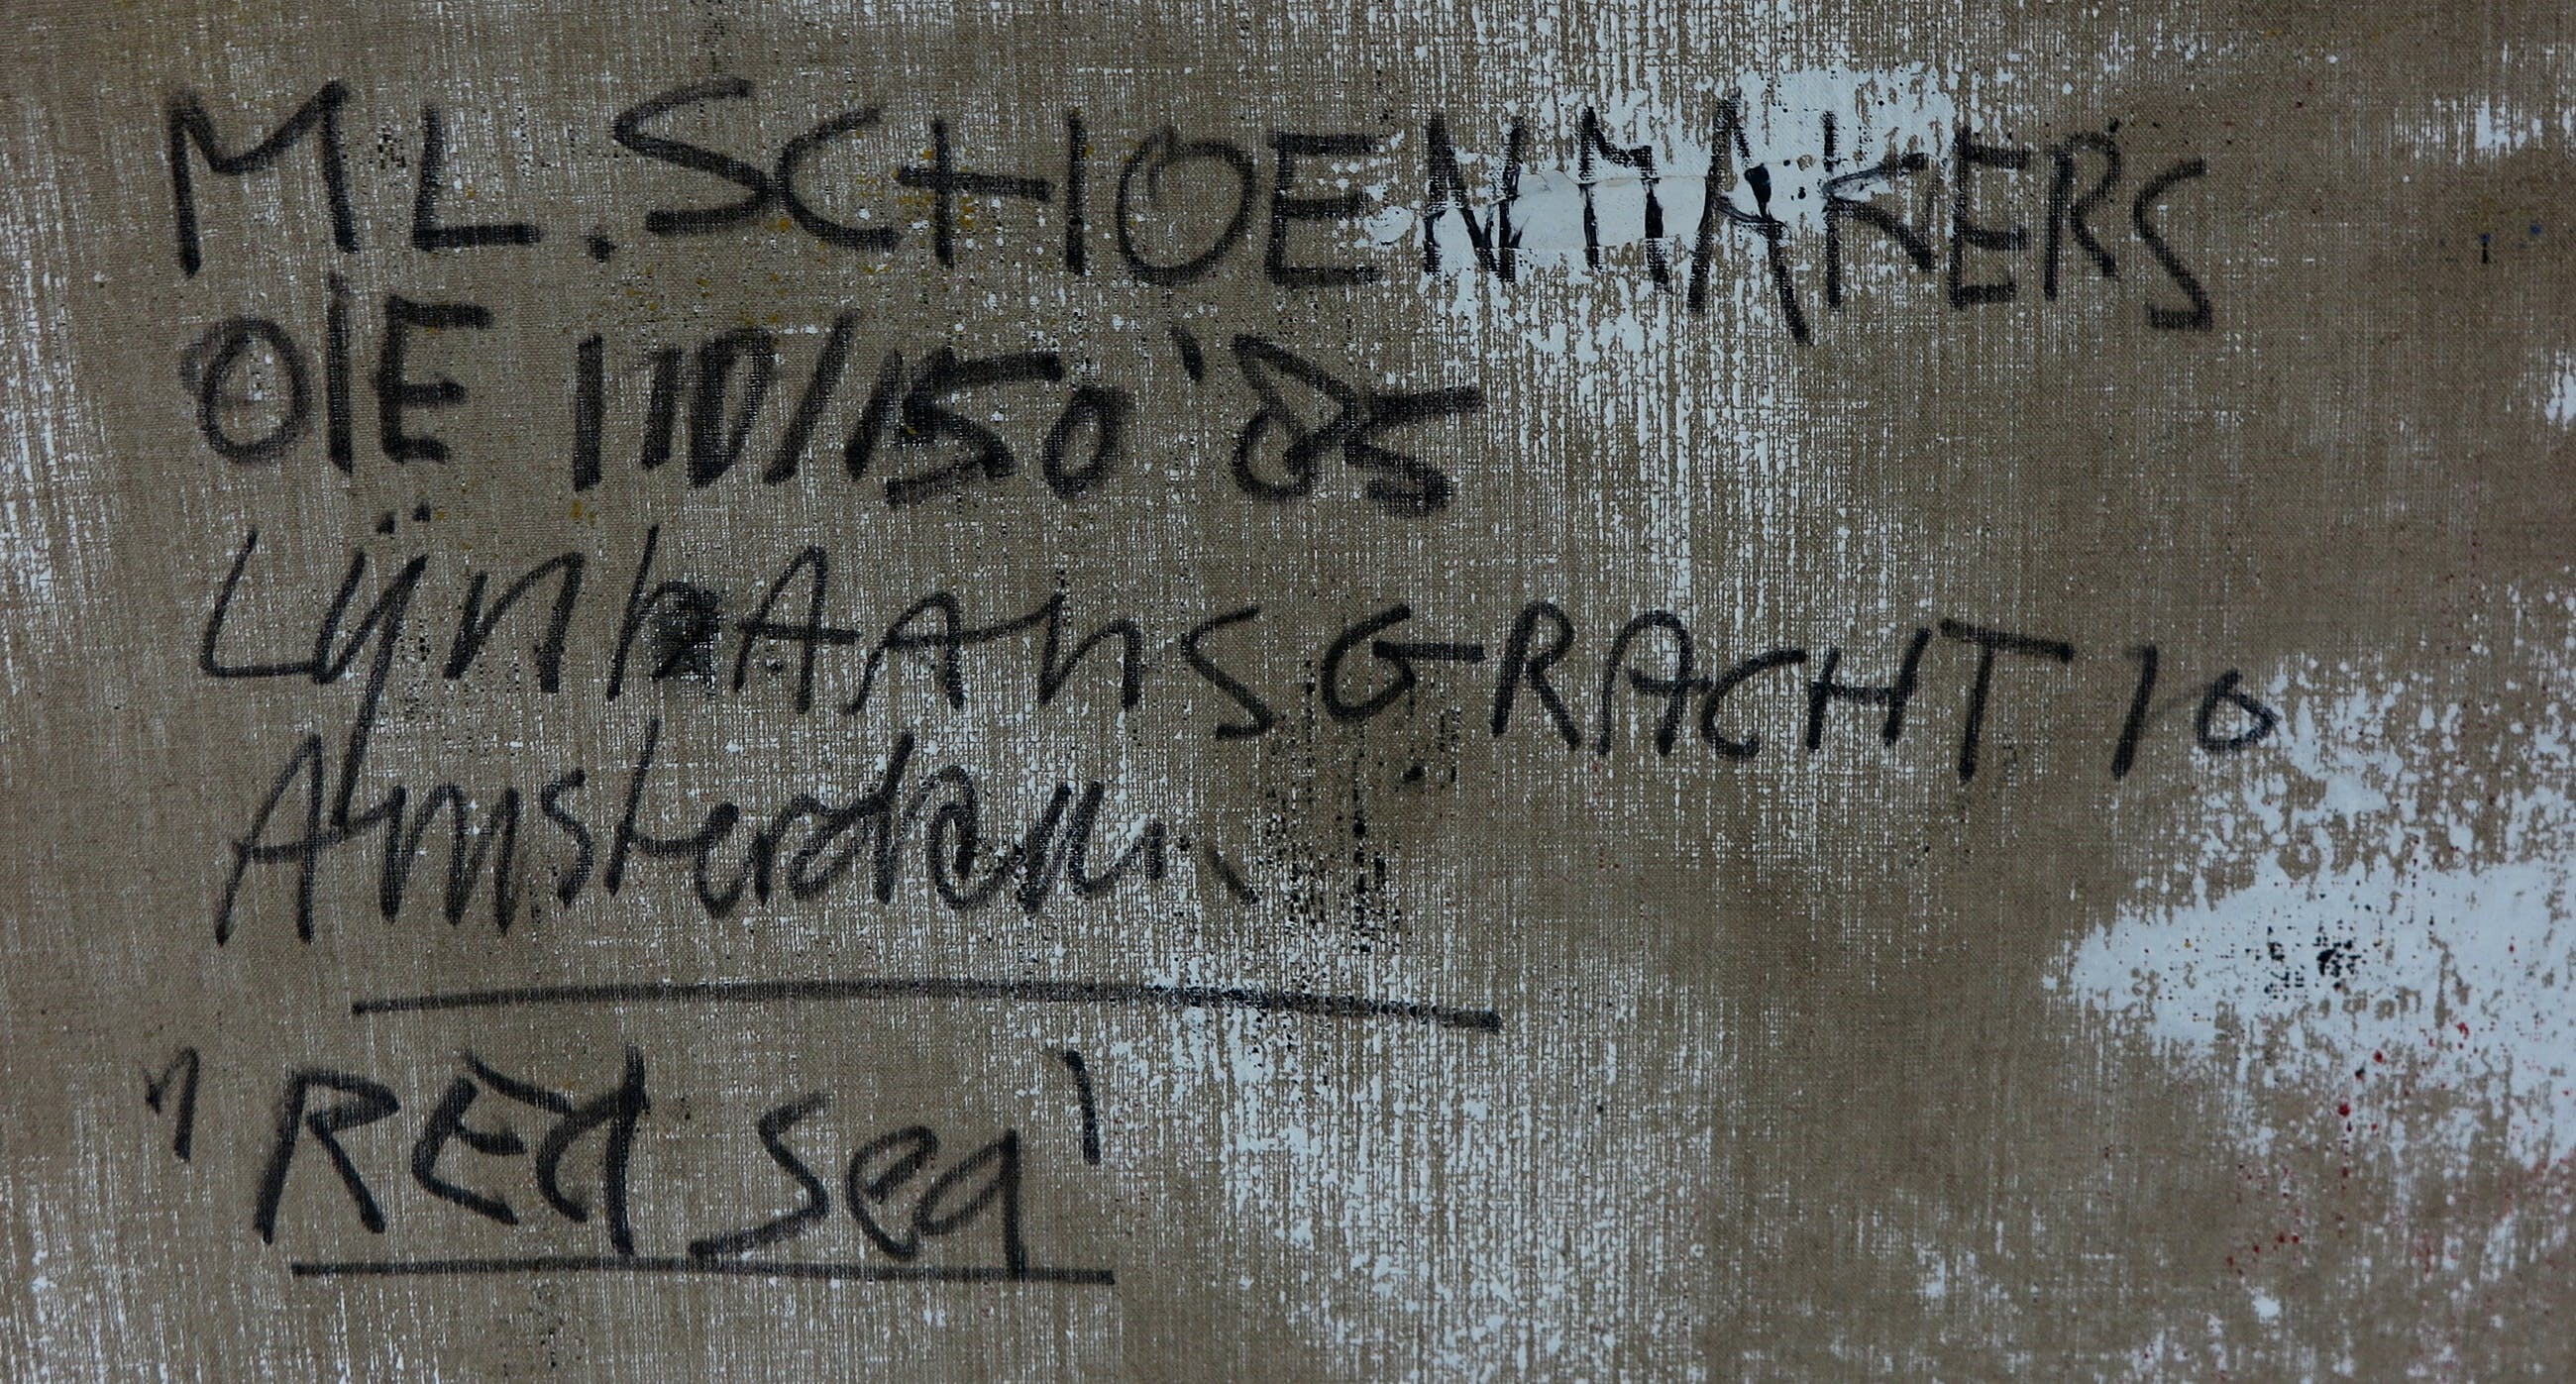 ML. SCHOENMAKERS
O/E 110/150 '85
LÿnbAAnSGRACHT 10
Amsterdam.
"REd Sea"